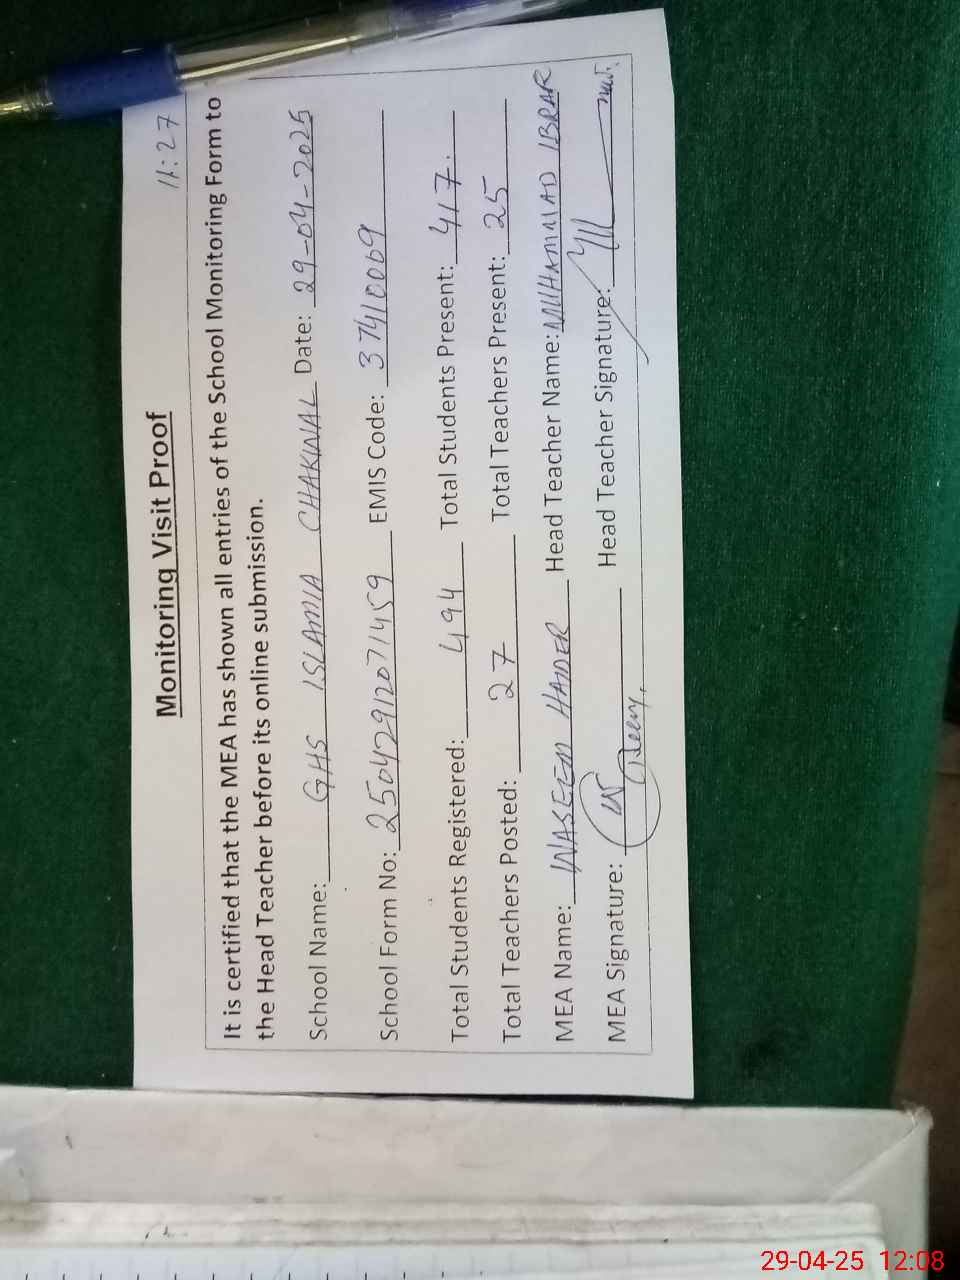 11:27
Monitoring Visit Proof
It is certified that the MEA has shown all entries of the School Monitoring Form to
the Head Teacher before its online submission.
School Name: GHS ISLAMIA CHAKINAL Date: 29-04-2025
School Form No: 25042912071459 EMIS Code: 37410069
Total Students Registered: 494 Total Students Present: 417.
Total Teachers Posted: 27 Total Teachers Present: 25
MEA Name: WASEEM HAIDER Head Teacher Name: MUHAMMAD IBRAR
MEA Signature: Head Teacher Signature:
29-04-25 12:08